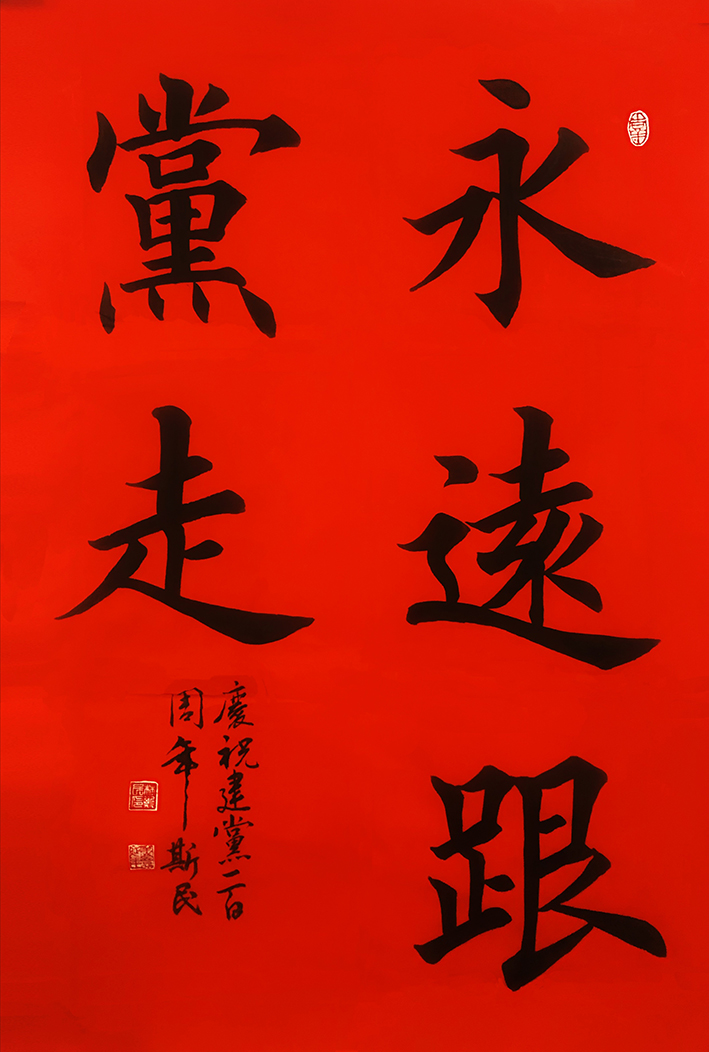 永遠跟
黨走
慶祝建黨一百
周年 斯民